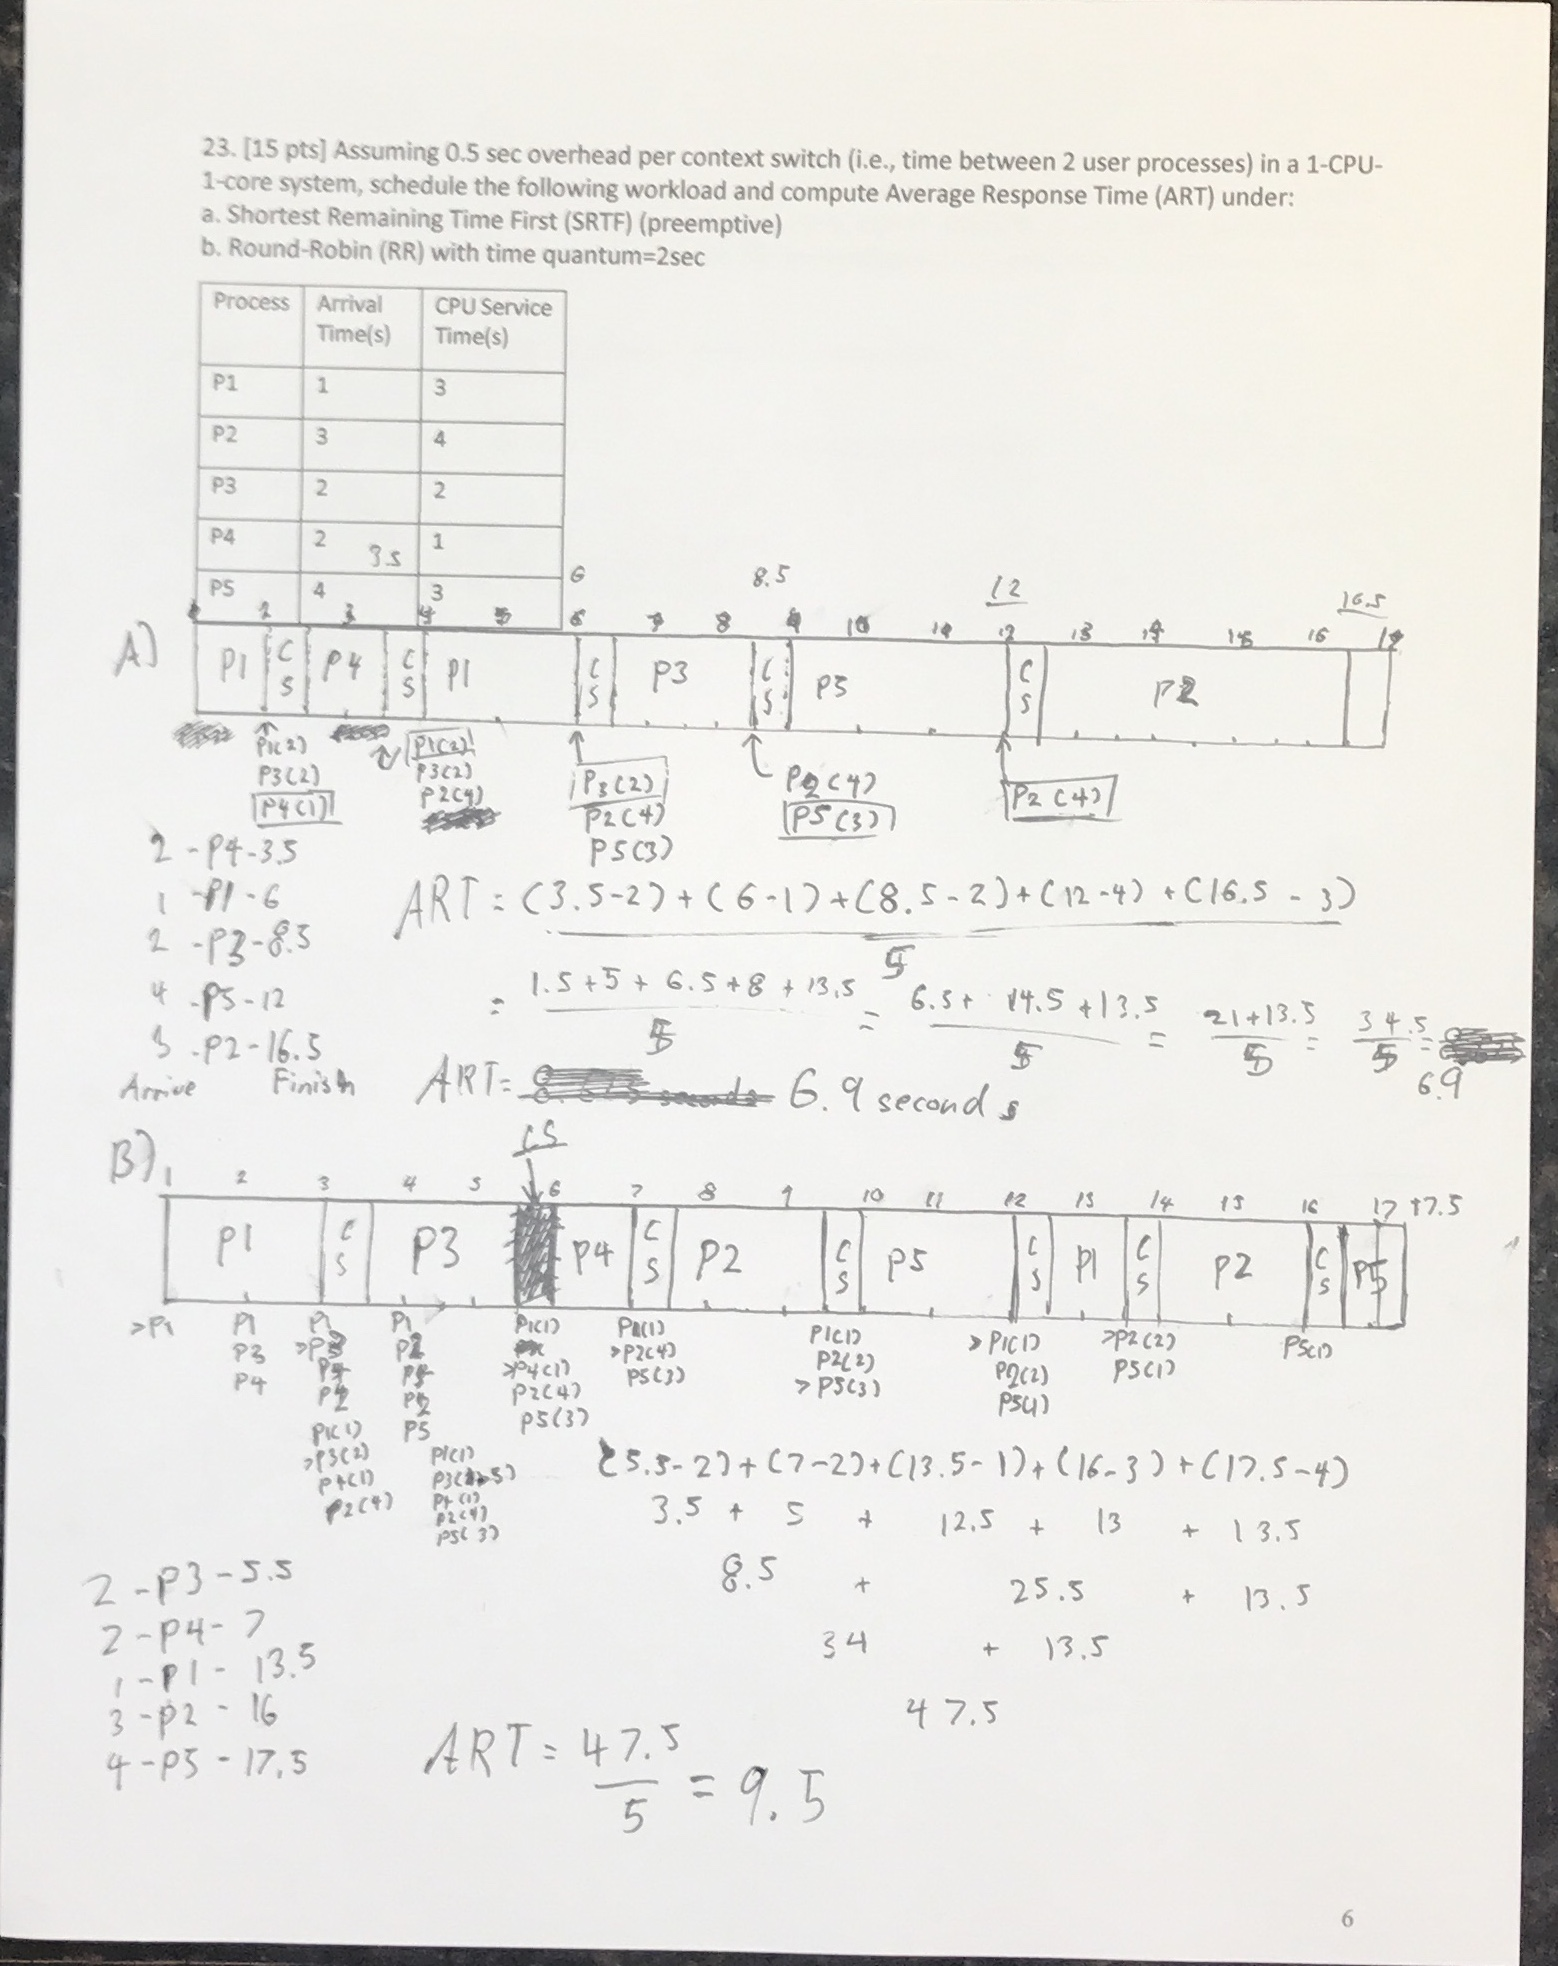 23. [15 pts] Assuming 0.5 sec overhead per context switch (i.e., time between 2 user processes) in a 1-CPU-
1-core system, schedule the following workload and compute Average Response Time (ART) under:
a. Shortest Remaining Time First (SRTF) (preemptive)
b. Round-Robin (RR) with time quantum=2sec
Process Arrival Time(s) CPU Service Time(s)
P1 1 3
P2 3 4
P3 2 2
P4 2 1
P5 4 3
3.5 6 8.5 12 16.5
2 3 4 5 6 7 8 9 10 11 12 13 14 15 16 17
A) P1 CS P4 CS P1 CS P3 CS P5 CS P2
P1(2) P1(2) P3(2) P2(4) P2(4)
P3(2) P3(2) P2(4) P5(3)
P4(1) P2(4) P5(3)
2 - P4 - 3.5
1 - P1 - 6
2 - P3 - 8.5
4 - P5 - 12
3 - P2 - 16.5
Arrive Finish
ART = (3.5-2) + (6-1) + (8.5-2) + (12-4) + (16.5-3)
5
= 1.5+5+6.5+8+13.5 = 6.5+14.5+13.5 = 21+13.5 = 34.5 =
5 5 5 5
6.9
ART = 6.9 seconds
CS
B) 1 2 3 4 5 6 7 8 9 10 11 12 13 14 15 16 17 17.5
P1 CS P3 P4 CS P2 CS P5 CS P1 CS P2 CS P5
>P1 P1 P1 P1 P1(1) P1(1) P1(1) >P1(1) >P2(2) P5(1)
P3 >P3 >P4(1) >P2(4) P2(2) P2(2) P5(1)
P4 P4 P2(4) P5(3) >P5(3) P5(1)
P2 P2 P5(3)
P1(1) P5
>P3(2) P1(1)
P4(1) P4(1)
P2(4) P2(4)
P5(3)
(5.5-2) + (7-2) + (13.5-1) + (16-3) + (17.5-4)
3.5 + 5 + 12.5 + 13 + 13.5
8.5 + 25.5 + 13.5
34 + 13.5
47.5
2 - P3 - 5.5
2 - P4 - 7
1 - P1 - 13.5
3 - P2 - 16
4 - P5 - 17.5
ART = 47.5
5
= 9.5
6